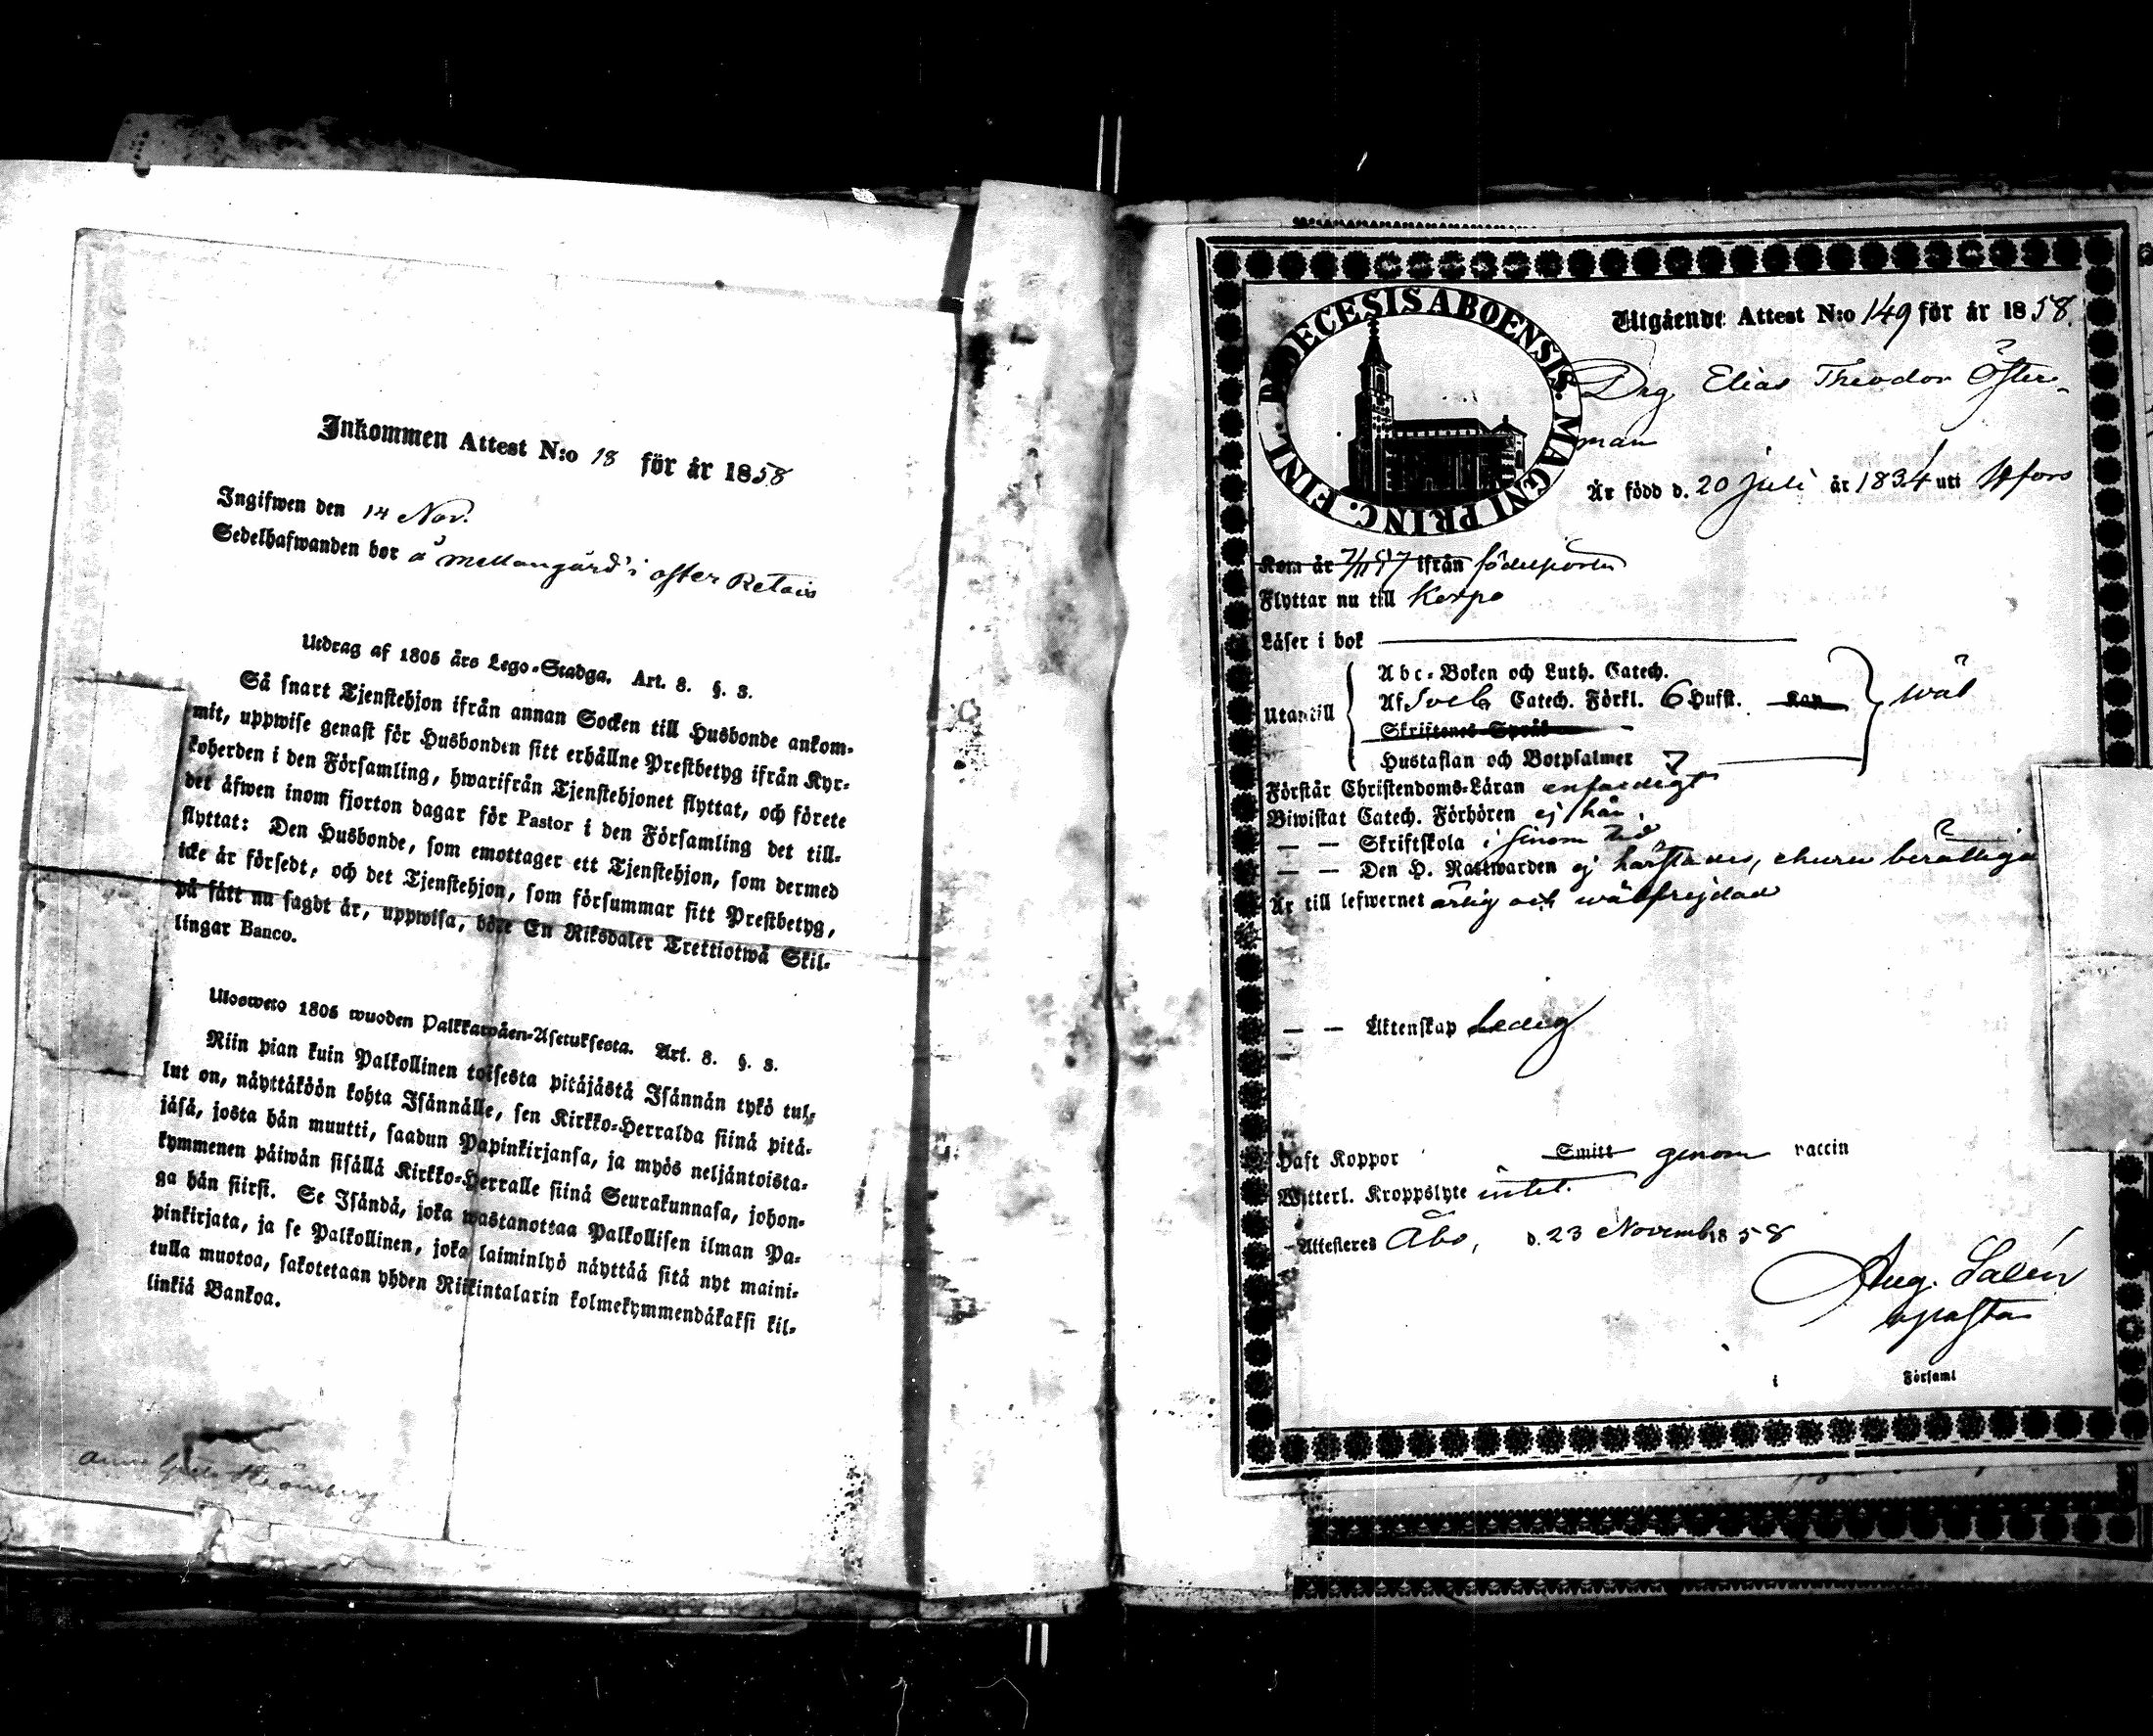 Inkommen Attest N:o 18 för år 1858
Ingifwen den 14 Nov.
Sedelhafwanden bor å mellangård i öster Retais
Utdrag af 1805 års Lego-Stadga. Art. 8. §. 3.
Så snart Tjenstehjon ifrån annan Socken till Husbonde ankom-
mit, uppwise genast för Husbonden sitt erhållne Prestbetyg ifrån Kyr-
koherden i den Församling, hwarifrån Tjenstehjonet flyttat, och förete
det äfwen inom fjorton dagar för Pastor i den Församling det till-
flyttat: Den Husbonde, som emottager ett Tjenstehjon, som dermed
icke är försedt, och det Tjenstehjon, som försummar sitt Prestbetyg,
på sätt nu sagdt är, uppwisa, böte En Riksdaler Trettiotwå Skil-
lingar Banco.
Ulosweto 1805 wuoden Palkkawäen-Asetuksesta. Art. 8. §. 3.
Niin pian kuin Palkollinen toisesta pitäjästä Isännän tykö tul-
lut on, näyttäköön kohta Isännälle, sen Kirkko-Herralda siinä pitä-
jäsä, josta hän muutti, saadun Papinkirjansa, ja myös neljäntoista-
kymmenen päiwän sisällä Kirkko-Herralle siinä Seurakunnasa, johon-
ga hän siirsi. Se Isändä, joka wastanottaa Palkollisen ilman Pa-
pinkirjata, ja se Palkollinen, joka laiminlyö näyttää sitä nyt maini-
tulla muotoa, sakotetaan yhden Riikintalarin kolmekymmendäkaksi kil-
linkiä Bankoa.
DIOECESIS ABOENSIS. MAGNI PRINC. FINL.
Utgående Attest N:o 149 för år 1858.
Drg Elias Theodor Öster-
man
Är född d. 20 Juli år 1834 uti Hfors
Kom år 7/11 57 ifrån födelseorten
Flyttar nu till Korpo
Läser i bok
Utantill
Abc-Boken och Luth. Catech.
Af Sveb. Catech. Förkl. 6 Hufst. Kap
Skriftenes Språk
Hustaflan och Botpsalmer 7
wäl
Förstår Christendoms-Läran enfaldigt
Biwistat Catech. Förhören ej här.
— — Skriftskola i sinom tid
— — Den H. Nattwarden ej härstädes, ehuru berättigad
Är till lefwernet ärlig och wälfrejdad
— — Äktenskap Ledig
Haft Koppor Smitt genom vaccin
Witterl. Kroppslyte intet.
Attesteres Åbo, d. 23 Novemb 1858
Aug. Salén
i Församl